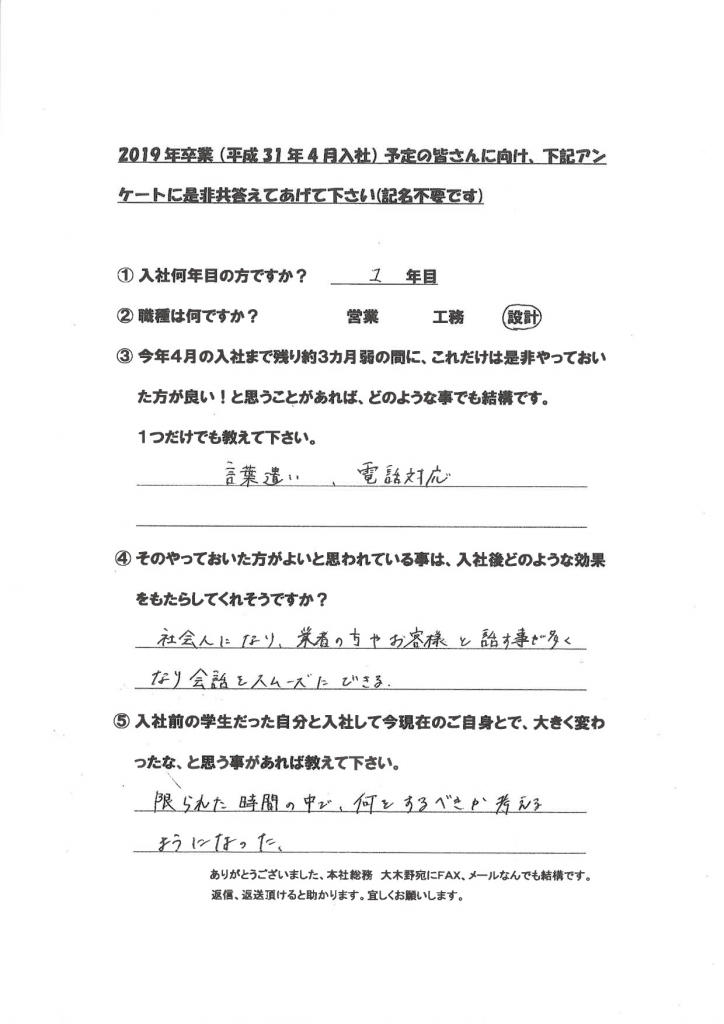 2019年卒業（平成31年4月入社）予定の皆さんに向け、下記アン
ケートに是非共答えてあげて下さい(記名不要です)
① 入社何年目の方ですか？ 1 年目
② 職種は何ですか？ 営業 工務 設計
③ 今年4月の入社まで残り約3カ月弱の間に、これだけは是非やっておい
た方が良い！と思うことがあれば、どのような事でも結構です。
1つだけでも教えて下さい。
言葉遣い 、電話対応
④ そのやっておいた方がよいと思われている事は、入社後どのような効果
をもたらしてくれそうですか？
社会人になり、業者の方やお客様と話す事が多く
なり会話をスムーズにできる.
⑤ 入社前の学生だった自分と入社して今現在のご自身とで、大きく変わ
ったな、と思う事があれば教えて下さい。
限られた時間の中で、何をするべきか考える
ようになった。
ありがとうございました、本社総務 大木野宛にFAX、メールなんでも結構です。
返信、返送頂けると助かります。宜しくお願いします。